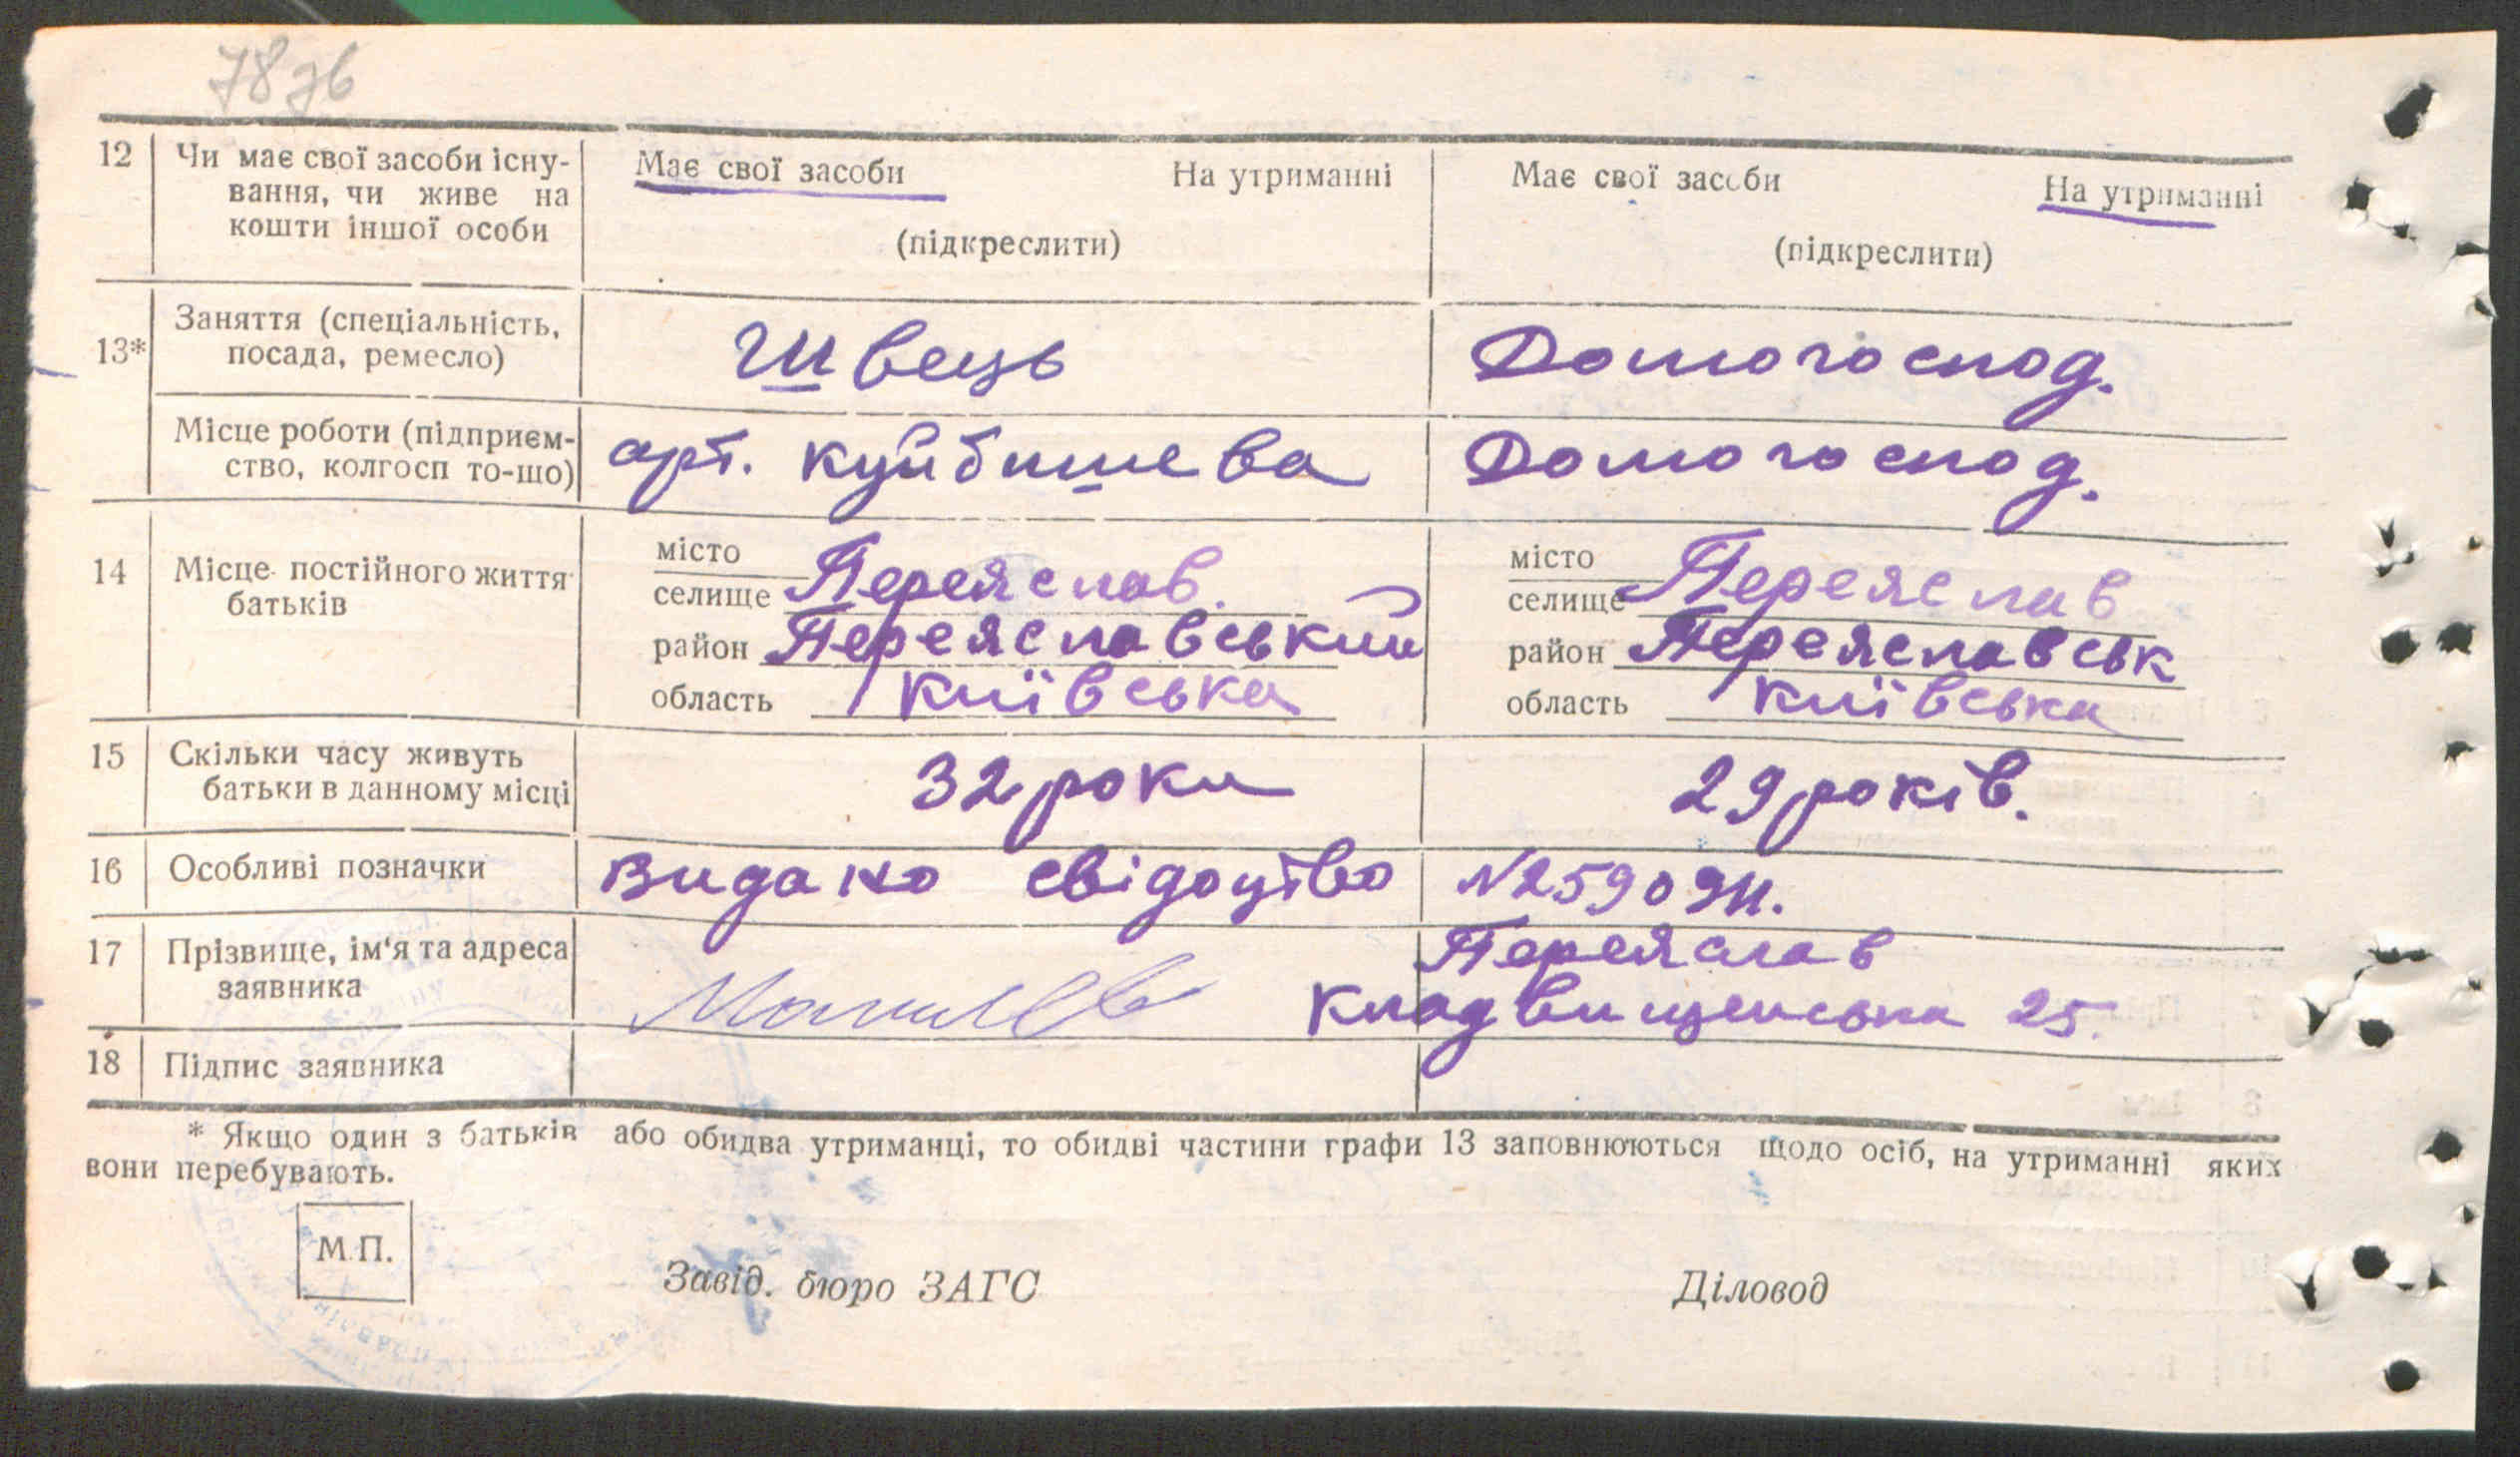 78 зв
12 Чи має свої засоби існу- Має свої засоби На утриманні Має свої засоби На утриманні
вання, чи живе на
кошти іншої особи (підкреслити) (підкреслити)
13* Заняття (спеціальність, Швець Домогоспод.
посада, ремесло)
Місце роботи (підприєм- арт. Куйбишева Домогоспод.
ство, колгосп то-що)
14 Місце постійного життя місто Переяслав. місто Переяслав
батьків селище селище
район Переяславський район Переяславськ
область Київська область Київська
15 Скільки часу живуть 32 роки 29 років.
батьки в данному місці
16 Особливі позначки Видано свідоцтво №
17 Прізвище, ім'я та адреса Переяслав
заявника Кладвищенська 25.
18 Підпис заявника
* Якщо один з батьків або обидва утриманці, то обидві частини графи 13 заповнюються щодо осіб, на утриманні яких
вони перебувають.
М.П.
Завід. бюро ЗАГС Діловод